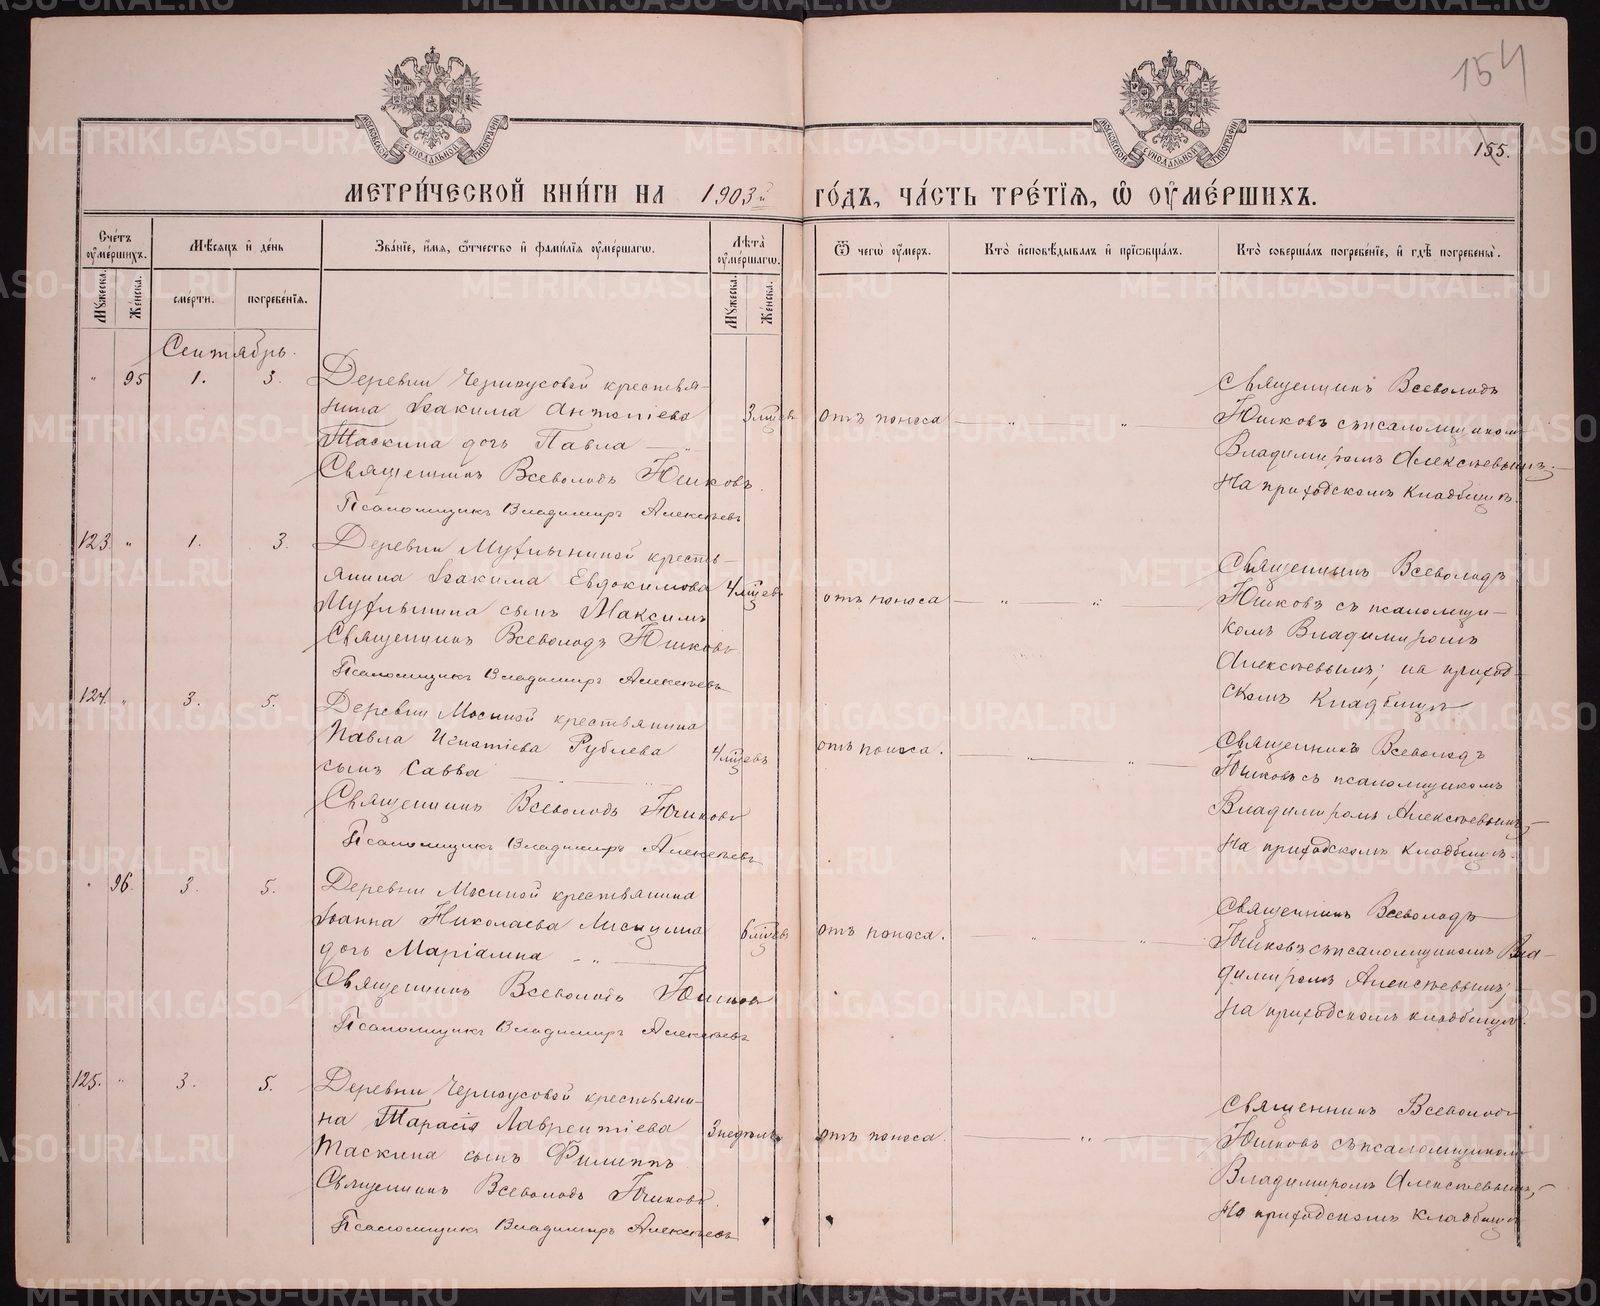 154
155.
МЕТРИ́ЧЕСКОЙ КНИ́ГИ НА 1903й ГО́ДЪ, ЧА́СТЬ ТРЕ́ТІЯ, Ѿ ОУМЕ́РШИХЪ.
Сче́тъ оумéршихъ.
Мѣ́сяцъ и де́нь
Зва́ніе, и́мя, ѻ́тчество и фами́лія оуме́ршагѡ.
Лѣта̀ оуме́ршагѡ.
Ѿ чегѡ̀ оу́меръ.
Кто̀ исповѣ́дывалъ и прїѡбща́лъ.
Кто̀ соверша́лъ погребе́ніе, и гдѣ̀ погребены̀.
Мꙋжеска.
Же́нска.
сме́рти.
погребе́нія.
Мꙋжеска.
Же́нска.
Сентябрь.
" 95 1. 3.
Деревни Черноусовой крестья-
нина Іоакима Антоніева
Таскина дочь Павла — " —
Священникъ Всеволодъ Юшковъ.
Псаломщикъ Владимиръ Алексѣевъ
3 мѣсѣ
отъ поноса — " — " —
Священникъ Всеволодъ
Юшковъ съ псаломщикомъ
Владимиромъ Алексѣевымъ;
На приходскомъ кладбищѣ.
123. " 1. 3.
Деревни Мухлыниной кресть-
янина Іоакима Евдокимова
Мухлынина сынъ Максимъ
Священникъ Всеволодъ Юшковъ
Псаломщикъ Владимиръ Алексѣевъ
отъ поноса — " — " —
Священникъ Всеволодъ
Юшковъ съ псаломщи-
комъ Владимиромъ
Алексѣевымъ; на приход-
скомъ кладбищѣ
124. " 3. 5.
Деревни Мосиной крестьянина
Павла Игнатіева Рублева
сынъ Савва — " —
Священникъ Всеволодъ Юшковъ
Псаломщикъ Владимиръ Алексѣевъ
отъ поноса. — " — " —
Священникъ Всеволодъ
Юшковъ съ псаломщикомъ
Владимиромъ Алексѣевымъ;
На приходскомъ кладбищѣ.
" 96. 3. 5.
Деревни Мосиной крестьянина
Іоанна Николаева Лисицина
дочь Маріамна — " —
Священникъ Всеволодъ Юшковъ
Псаломщикъ Владимиръ Алексѣевъ
отъ поноса. — " — " —
Священникъ Всеволодъ
Юшковъ съ псаломщикомъ Вла-
димиромъ Алексѣевымъ;
На приходскомъ кладбищѣ.
125. " 3. 5.
Деревни Черноусовой крестьяни-
на Тарасія Лаврентіева
Таскина сынъ Филиппъ
Священникъ Всеволодъ Юшковъ
Псаломщикъ Владимиръ Алексѣевъ
3 недѣль.
отъ поноса. — " —
Священникъ Всеволодъ
Юшковъ съ псаломщикомъ
Владимиромъ Алексѣевымъ;
На приходскомъ кладбищѣ
METRIKI.GASO-URAL.RU